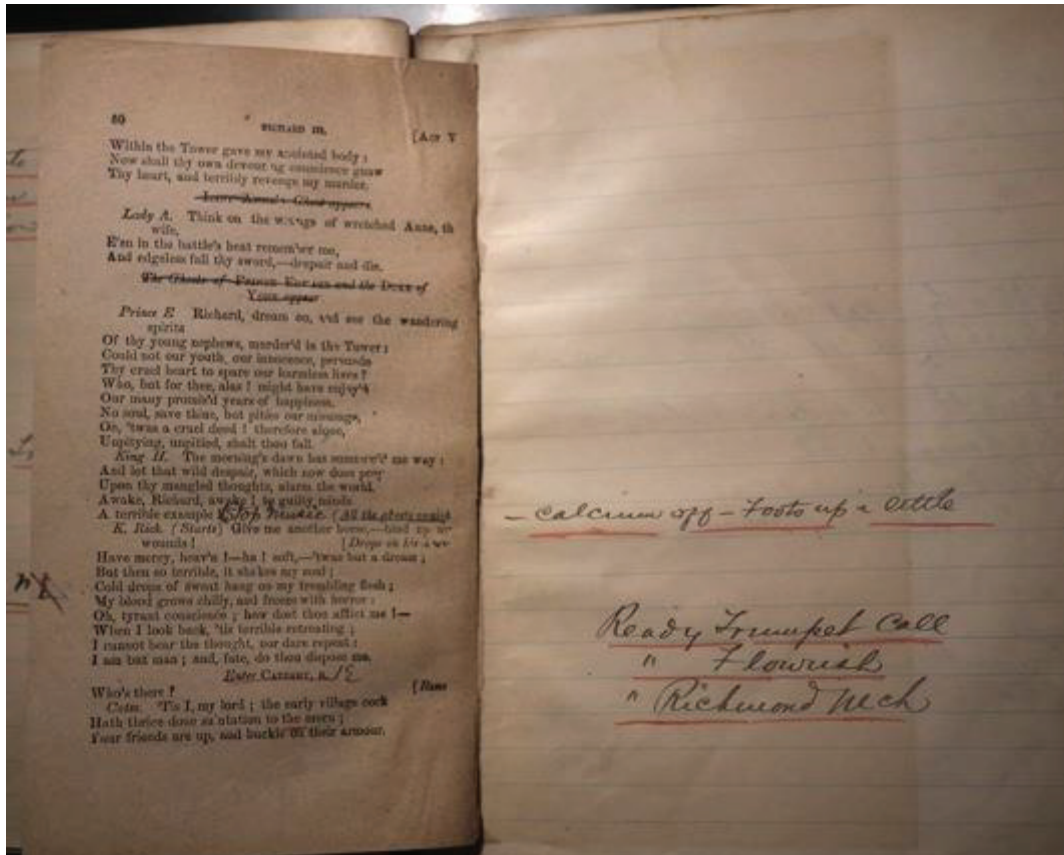 60
RICHARD III.
[ACT V
Within the Tower gave my anointed body:
Now shall thy own devouring conscience gnaw
Thy heart, and terribly revenge my murder.
Lady Anne's Ghost appears.
Lady A. Think on the wrongs of wretched Anne, th
wife,
E'en in the battle's heat remember me,
And edgeless fall thy sword,—despair and die.
The Ghosts of PRINCE EDWARD and the DUKE of
YORK appear
Prince E Richard, dream on, and see the wandering
spirits
Of thy young nephews, murder'd in the Tower:
Could not our youth, our innocence, persuade
Thy cruel heart to spare our harmless lives?
Who, but for thee, alas! might have enjoy'd
Our many promis'd years of happiness.
No soul, save thine, but pities our
Oh, 'twas a cruel deed! therefore alone,
Unpitying, unpitied, shalt thou fall.
King H. The morning's dawn has summon'd me way:
And let that wild despair, which now does prey
Upon thy mangled thoughts, alarm the world.
Awake, Richard, awake! to guilty minds
A terrible example Stop Music (All the ghosts vanish
K. Rich. (Starts) Give me another horse,—bind up
wounds! [Drops on his
Have mercy, heav'n!—ha! soft,—'twas but a dream;
But then so terrible, it shakes my soul;
Cold drops of sweat hang on my trembling flesh;
My blood grows chilly, and freeze with horror:
Oh, tyrant conscience; how dost thou afflict me!—
When I look back, 'tis terrible retreating;
I cannot bear the thought, nor dare repent:
I am but man; and, fate, do thou dispose me.
Enter CATESBY,
Who's there? [Runs
Cates. 'Tis I, my lord; the early village cock
Hath thrice done salutation to the morn;
Your friends are up, and buckle on their armour.
— Calcium off – Foots up a little
Ready Trumpet Call
" Flourish
" Richmond Mch